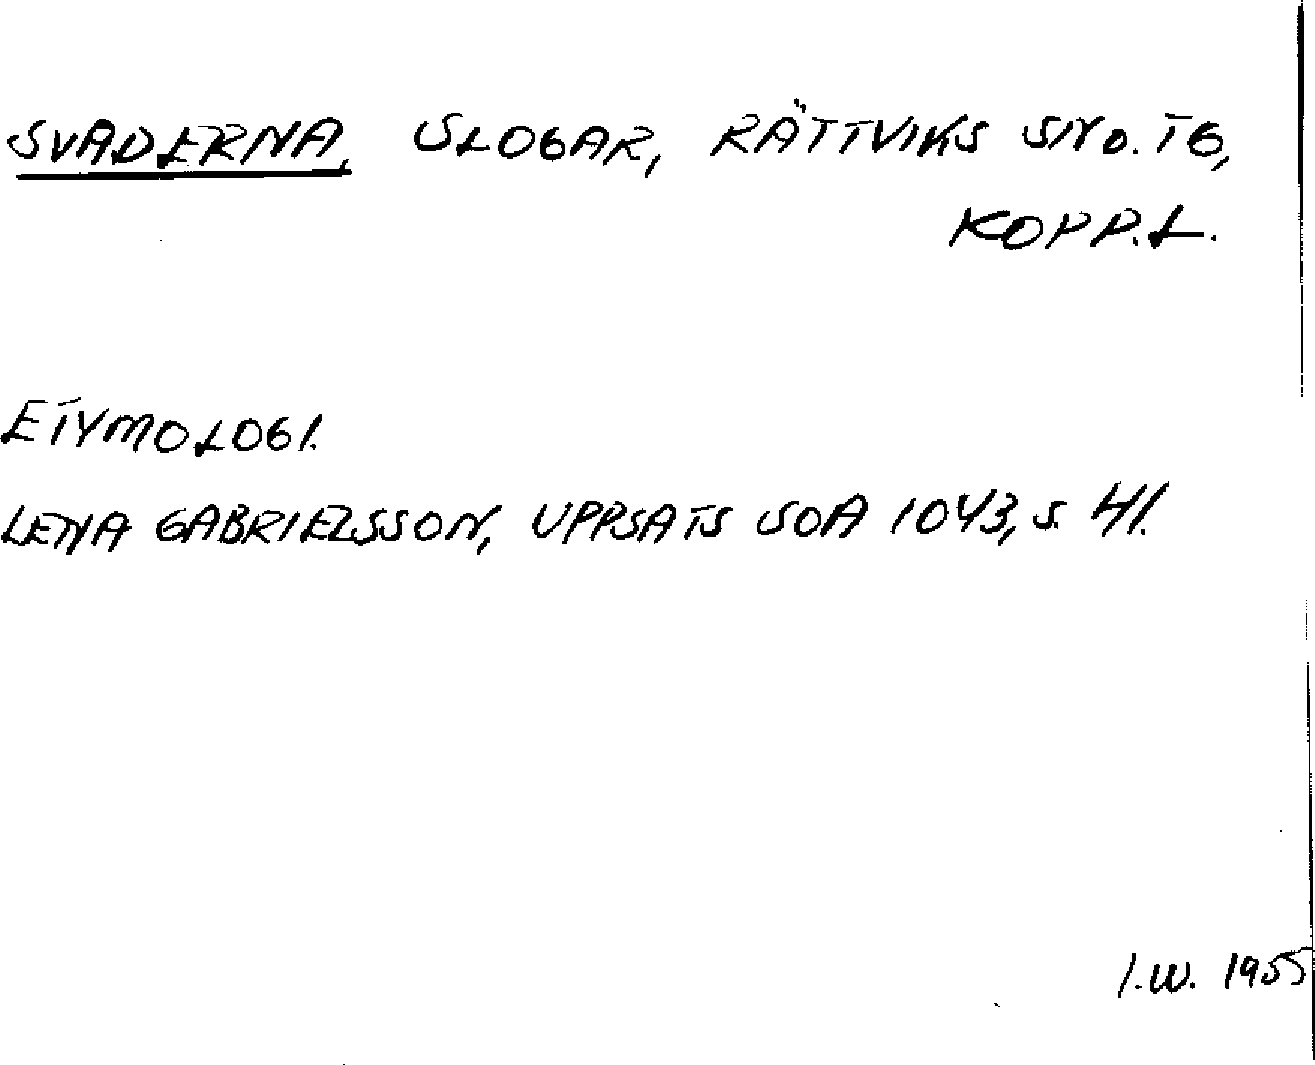 SVADERNA, SLOGAR, RÄTTVIKS SN O. TG,
KOPP. L.
ETYMOLOGI.
LENA GABRIELSSON, UPPSATS SOA 1043, S. 41.
I.W. 1955